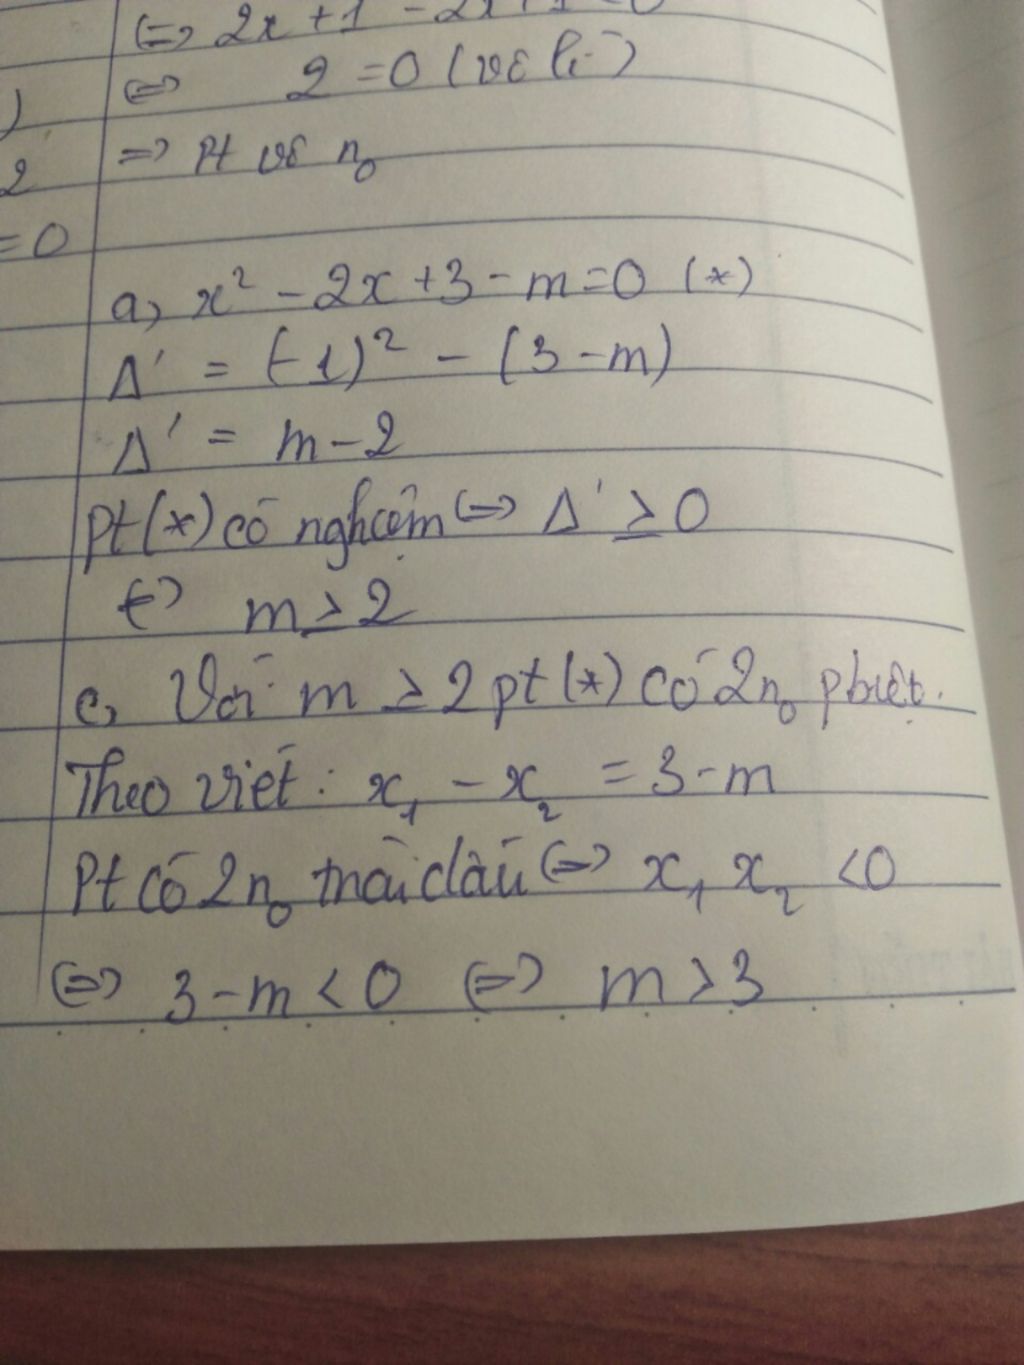 (=> 2x + 1 - 2x + 1 = 0
<=> 2 = 0 (vô lí)
)
2
=> Pt vô n₀
= 0
a, x² - 2x + 3 - m = 0 (*)
Δ' = (-1)² - (3 - m)
Δ' = m - 2
Pt (*) có nghiệm <=> Δ' ≥ 0
<=> m ≥ 2
c, Với m ≥ 2 pt (*) có 2 n₀ pbiệt.
Theo viét: x₁ - x₂ = 3 - m
Pt có 2 n₀ trái dấu <=> x₁ x₂ < 0
<=> 3 - m < 0 <=> m > 3